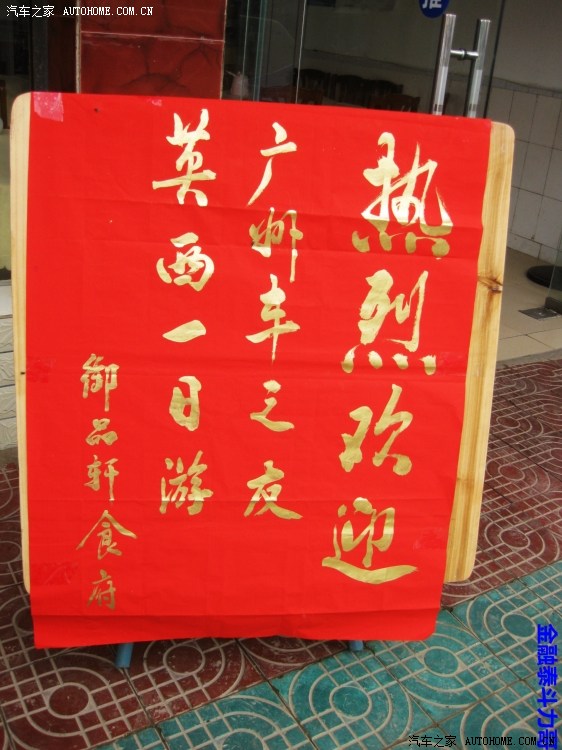 热烈欢迎
广州车之友
英西一日游
御品轩食府
汽车之家 AUTOHOME.COM.CN
推
金融泰斗力哥
汽车之家 AUTOHOME.COM.CN